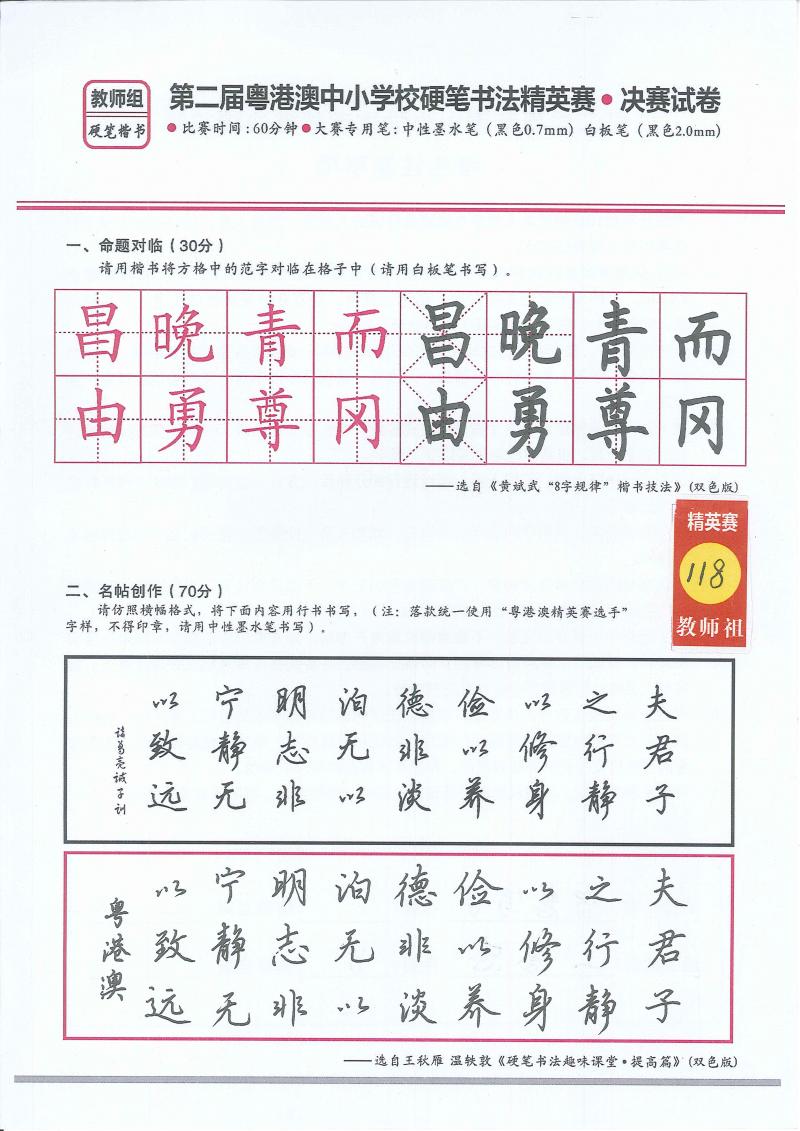 教师组
硬笔楷书
第二届粤港澳中小学校硬笔书法精英赛•决赛试卷
●比赛时间：60分钟●大赛专用笔：中性墨水笔（黑色0.7mm）白板笔（黑色2.0mm）
一、命题对临（30分）
请用楷书将方格中的范字对临在格子中（请用白板笔书写）。
昌晚青而昌晚青而
由勇尊冈由勇尊冈
——选自《黄斌武“8字规律”楷书技法》(双色版)
精英赛
118
教师祖
二、名帖创作（70分）
请仿照横幅格式，将下面内容用行书书写，（注：落款统一使用“粤港澳精英赛选手”
字样，不得印章，请用中性墨水笔书写）。
夫君子
之行静
以修身
俭以养
德非淡
泊无以
明志非
宁静无
以致远
诸葛亮诫子训
夫君子
之行静
以修身
俭以养
德非淡
泊无以
明志非
宁静无
以致远
粤港澳
——选自王秋雁 温轶敦《硬笔书法趣味课堂•提高篇》(双色版)